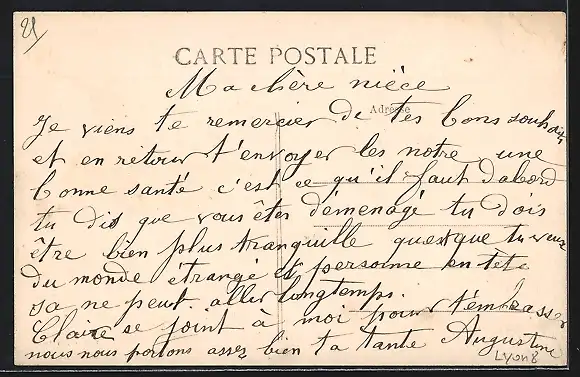 21
CARTE POSTALE
Ma chère nièce
Adresse
Je viens te remercier de tes bons souhais
et en retour t'envoyer les notre, une
bonne santé c'est ce qu'il faut dabord
tu dis que vous êtes déménagé tu dois
être bien plus tranquille quesque tu veux
du monde étrangé et personne en tete
sa ne peut aller longtemps.
Claire se joint à moi pour t'embrasser
nous nous portons assez bien ta tante Augustine
Lyon 8